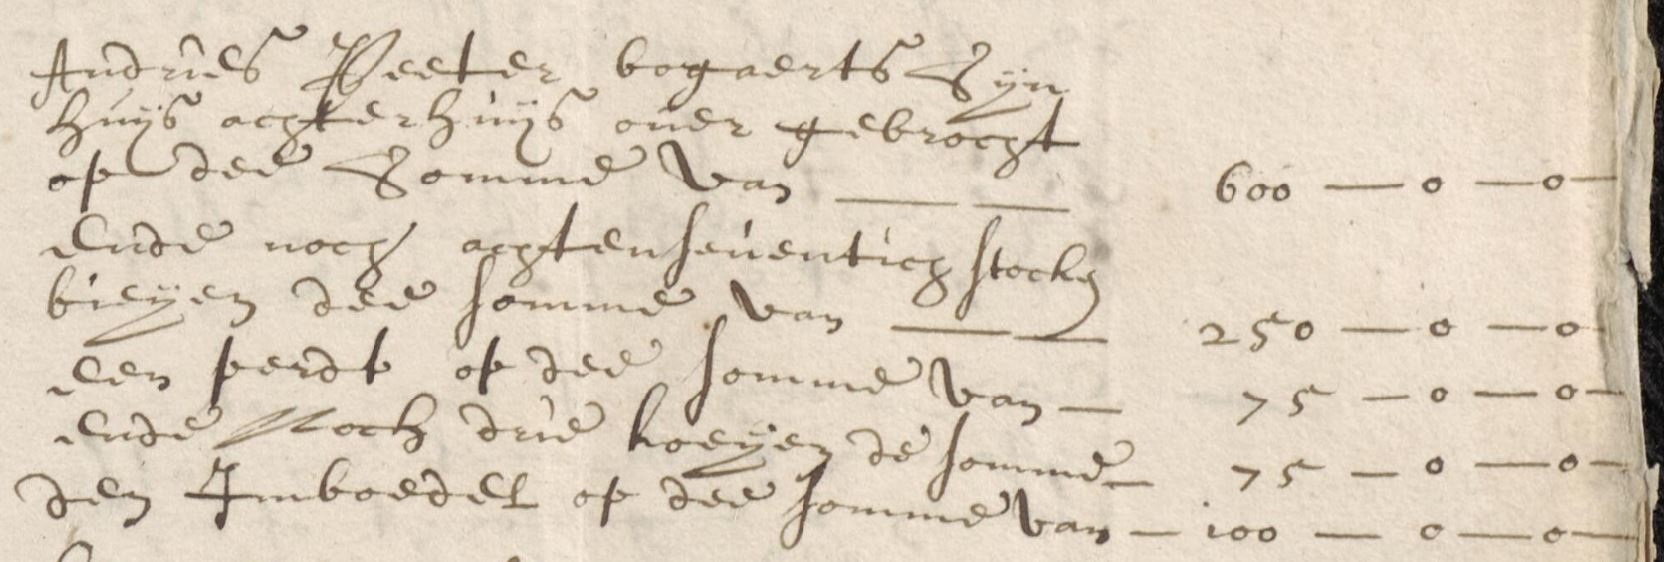 Andries Peeter bogaerts Zyn
huijs achterhuijs over gebrocht
op dee Zomme van — — 600 — 0 — 0 —
Ende noch achtenseventich stocken
bieyen dee somme van — — 250 — 0 — 0 —
een perdt op dee somme van — 75 — 0 — 0 —
ende Noch drie koeyen de somme — 75 — 0 — 0 —
den Imboedel op dee somme van — 100 — 0 — 0 —